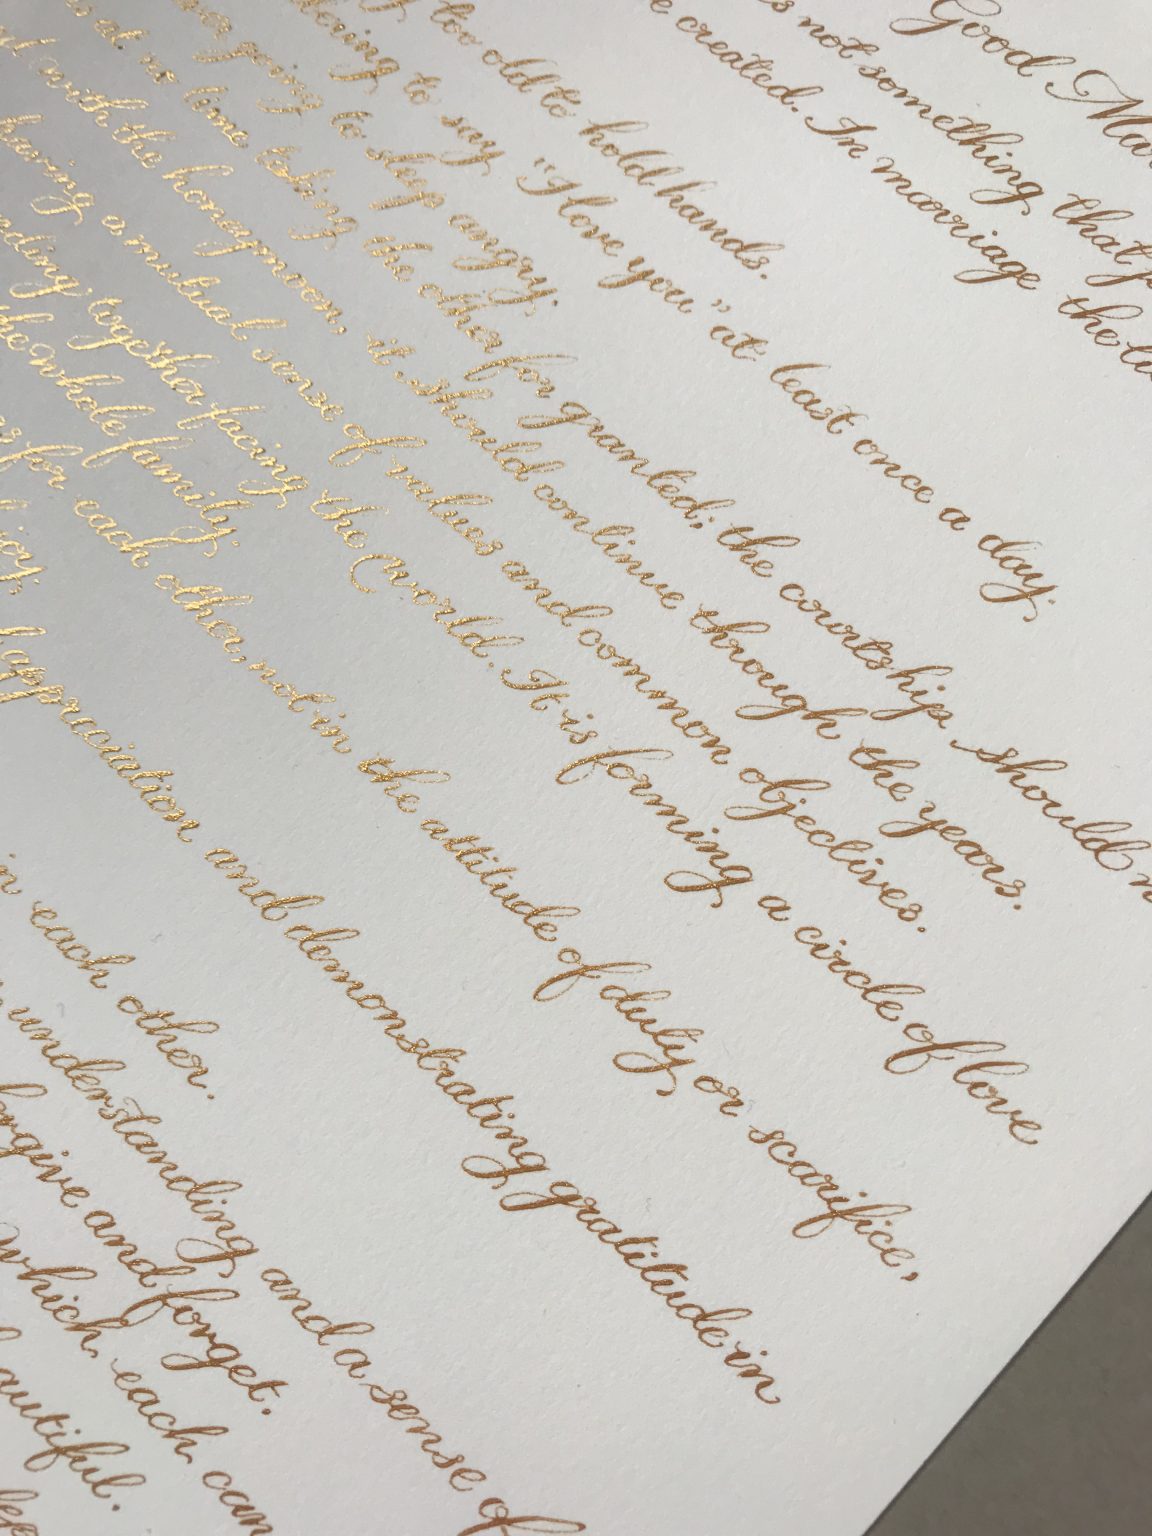 Good
s not something that
e created. In marriage the
too old to hold hands.
to say "I love you" at least once a day.
going to sleep angry.
at no time taking the other for granted; the courtship should
with the honeymoon, it should continue through the years.
having a mutual sense of values and common objectives.
together facing the world. It is forming a circle of love
the whole family.
for each other, not in the attitude of duty or scarifice,
joy.
appreciation and demonstrating gratitude in
in each other.
understanding and a sense of
forgive and forget.
which each can